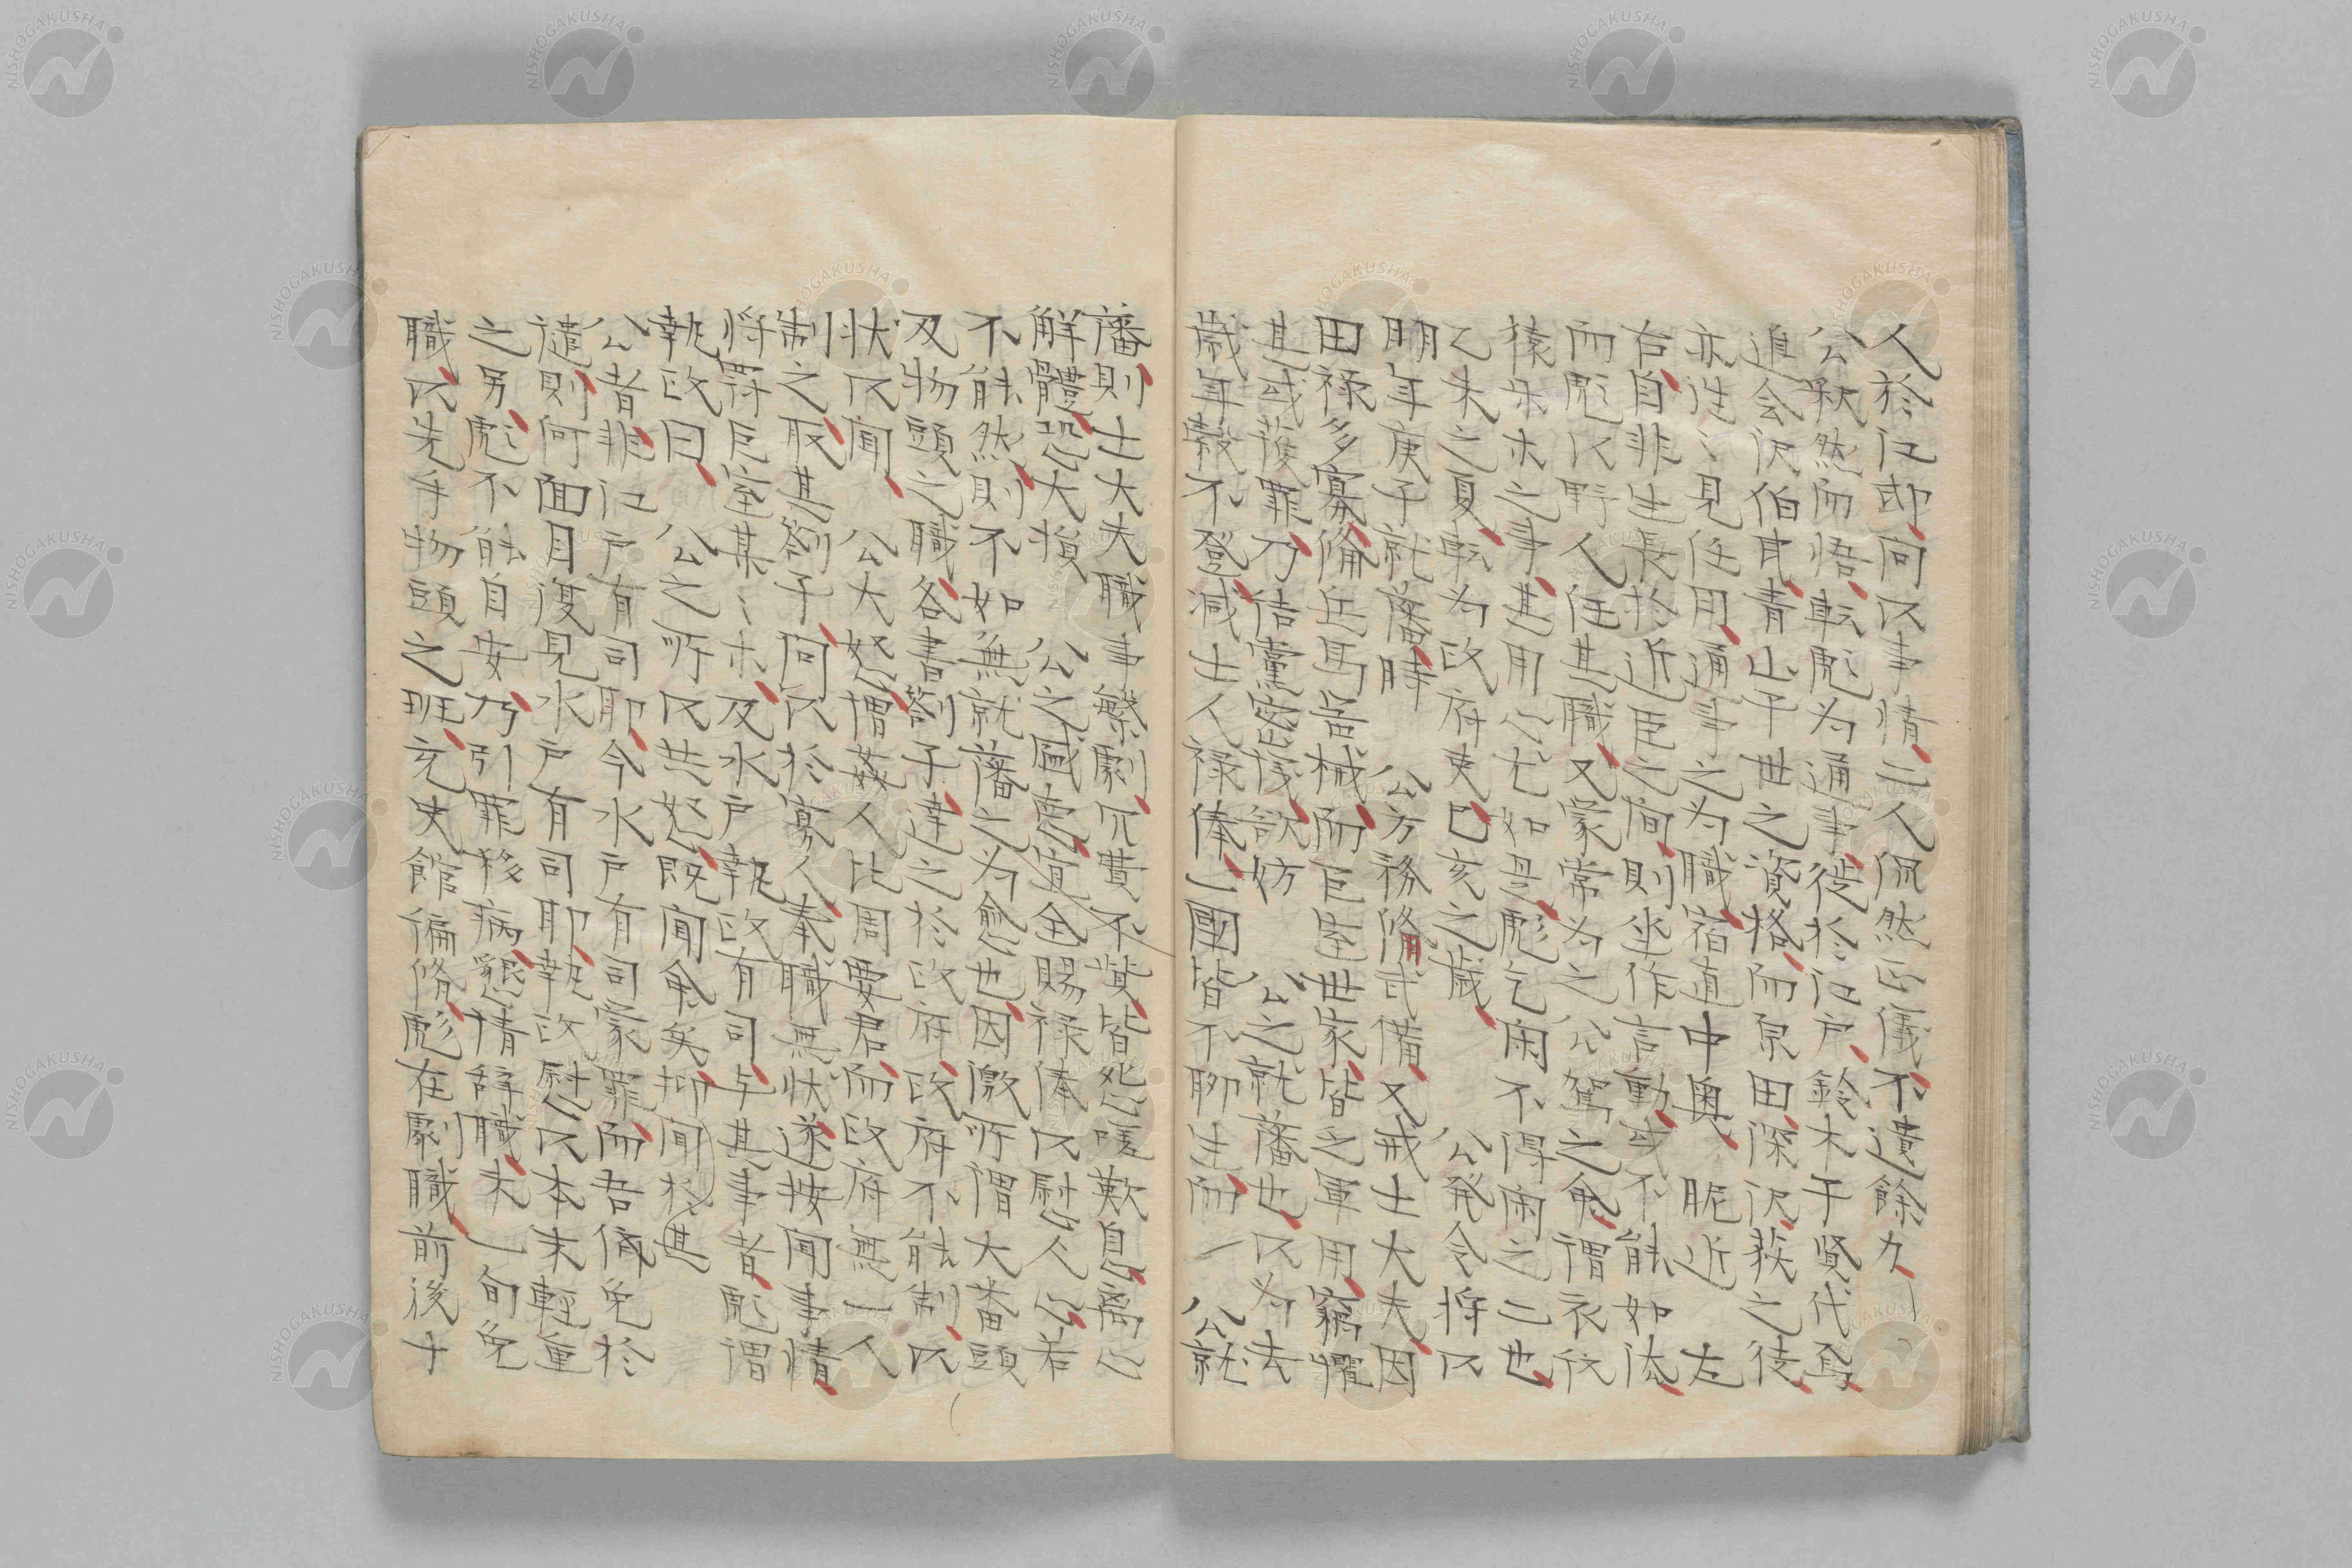 人於江邸、問以事情、二人侃然正議、不遺餘力、
公釈然而悟、転彪為通事、徙於江戸、鈴木于賢代焉、
追会沢伯民、青山于世之資格、而原田、深沢荻之徒、
亦往々見任用、通事之為職、宿直中奥、昵近 左
右、自非生長於近臣之間、則坐作言動、或不能如法、
而彪以野人任其職、又蒙常為之公駕之命、謂衣伩
猿朱木之事、其用心尤如是、彪乞閑不得閑之二也、
乙未之夏、転為政府吏、己亥之歳、 公発令将以
明年庚子就藩、時 公方務脩武備、又戒士大夫因
田禄多寡、脩兵馬器械、而巨室世家、皆之軍用、竊懼
其或獲罪、乃結党密議、欲妨 公之就藩也、以為去
歳年穀不登、減士人禄俸、一国皆不聊生、而一 公就
藩、則士大夫職事繁劇、冗費不貲、皆怨嗟歎息、离心
解體、恐大損 公之威恵、宜全賜禄俸以慰人心、若
不能然、則不如無就藩之為愈也、因激所謂大番頭
及物頭之職、各書劄子、達之於政府、政府不能制、以
状以聞、 公大怒、憎姦人比周要君、而政府無一人
制之、取其劄子、問以於寡人奉職無状、遂按聞事情、
将罪巨室某々木、及水戸執政有司、与其事者、彪謂
執政曰、 公之所以共怒、既聞命矣、抑聞於其
公者、非江戸有司耶、今水戸有司蒙罪、而吾儕免於
譴、則何面目復見水戸有司耶、執政慰以本末軽重
之別、彪不能自安、乃引罪移病、懇情辞職、未一旬免
職、以先手物頭之班、充史館編脩、彪在劇職、前後十